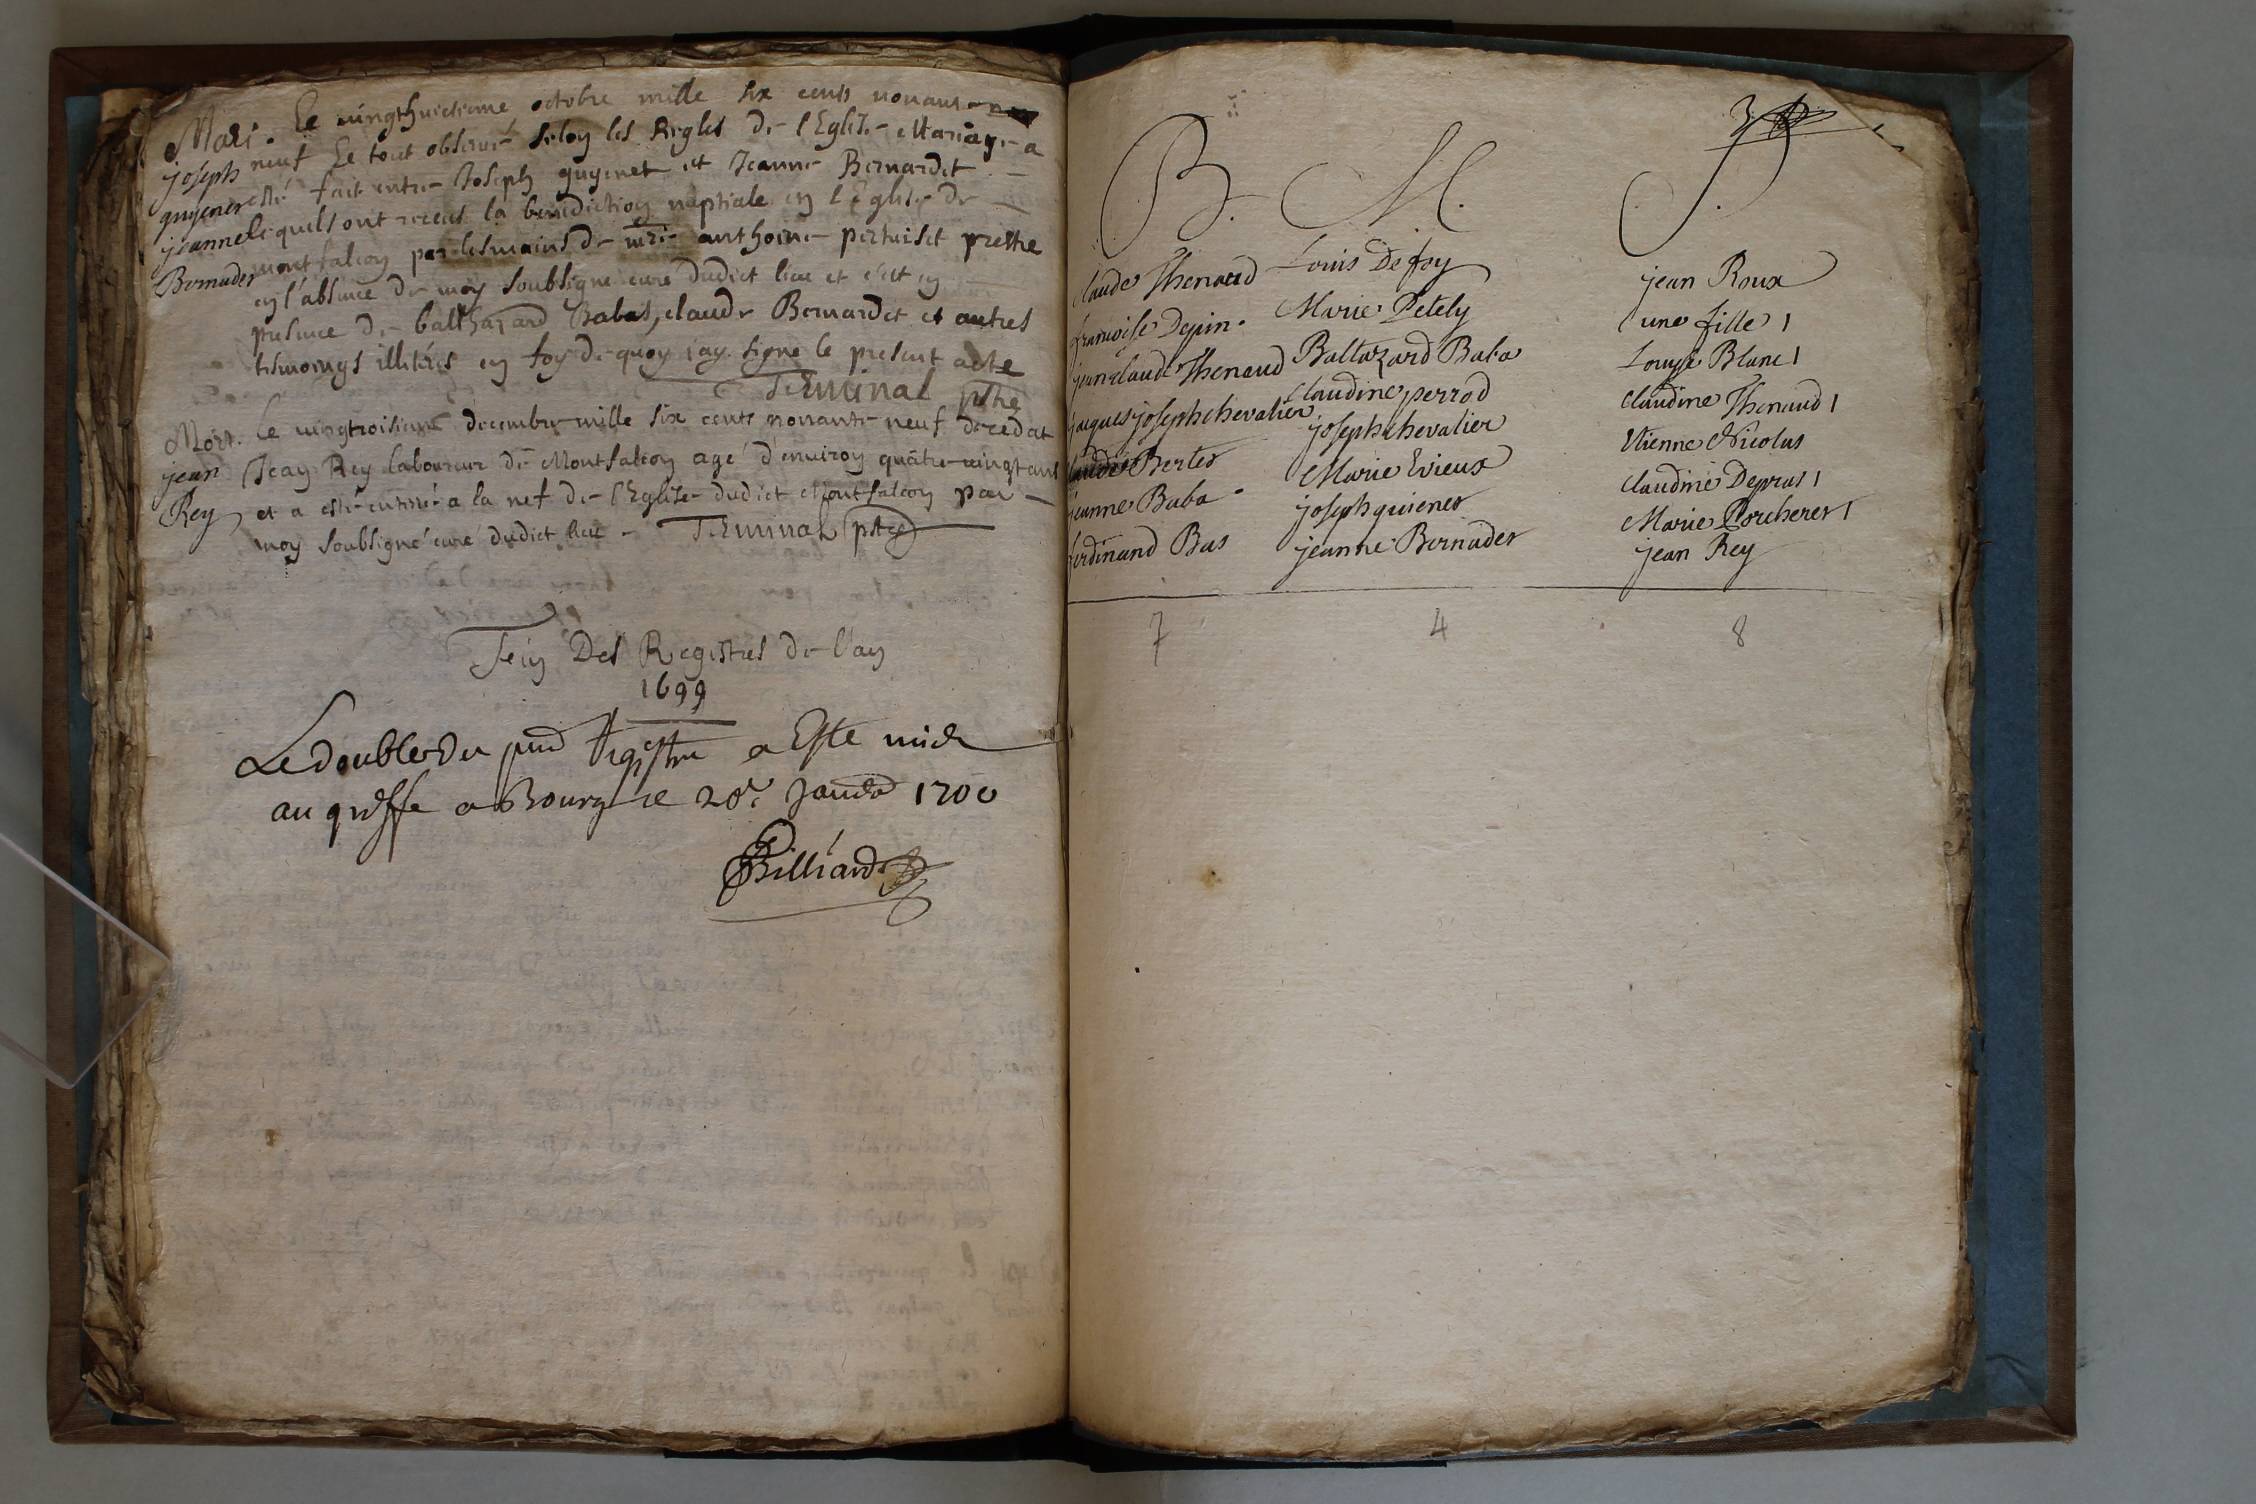 Mari. Le vingthuictieme octobre mille six cents nonante
joseph neuf Le tout observé selon les Regles de l'Eglise Mariage a
guyenet esté fait entre Joseph guyenet et Jeanne Bernardet
jeanne Lequels ont receus la benediction nuptiale en l'Eglise de
Bernader montfalcon par les mains de mre anthoine pertuiset prestre
en l'absence de moy soubsigne curé dudict lieu et c'est en
presence de balthazard Babas, claude Bernardet et autres
tesmoings illiterés en foy de quoy j'ay signé le present acte
Terminal ptre
Mort. Le vingtroisieme decembre mille six cents nonante neuf decedat
jean Jean Rey laboureur de Montfalcon agé d'environ quatre vingt ans
Rey et a esté enterré a la nef de l'Eglise dudict Montfalcon par
moy soubsigné curé dudict lieu - Terminal ptre
fein Des Registres de l'an
1699
Le double du pnt Registre a Esté mis
au greffe a Bourg le 20e Janvier 1700
Billiard
B. M. S.
claude Thenard Louis Defoy jean Roux
francoise Depin. Marie Petely une fille 1
jean claude Thenaud Baltazard Baba Louyse Blanc 1
jaques joseph chevalier claudine perrod claudine Thenaud 1
claude Berter joseph chevalier Etienne Nicolas
jeanne Baba Marie Evieux claudine Depras 1
ferdinand Bas joseph guiener Marie Porcherer 1
jeanne Bernader jean Rey
7 4 8